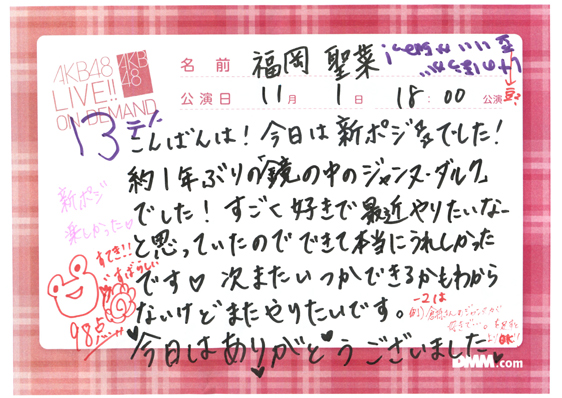 AKB48
LIVE!!
ON DEMAND
AKB
48
名前 福岡 聖菜
公演日 11月 1日 18:00 公演
こんばんは！今日は新ポジ でした！
約1年ぶりの「鏡の中のジャンヌ・ダルク」
でした！すごく好きで最近やりたいなー
と思っていたのでできて本当にうれしかった
です♡ 次またいつかできるかもわから
ないけどまたやりたいです。
今日はありがとうございました♡
新ポジ
楽しかった♡
すてき!!
すばらしい
98点
-2は
DMM.com